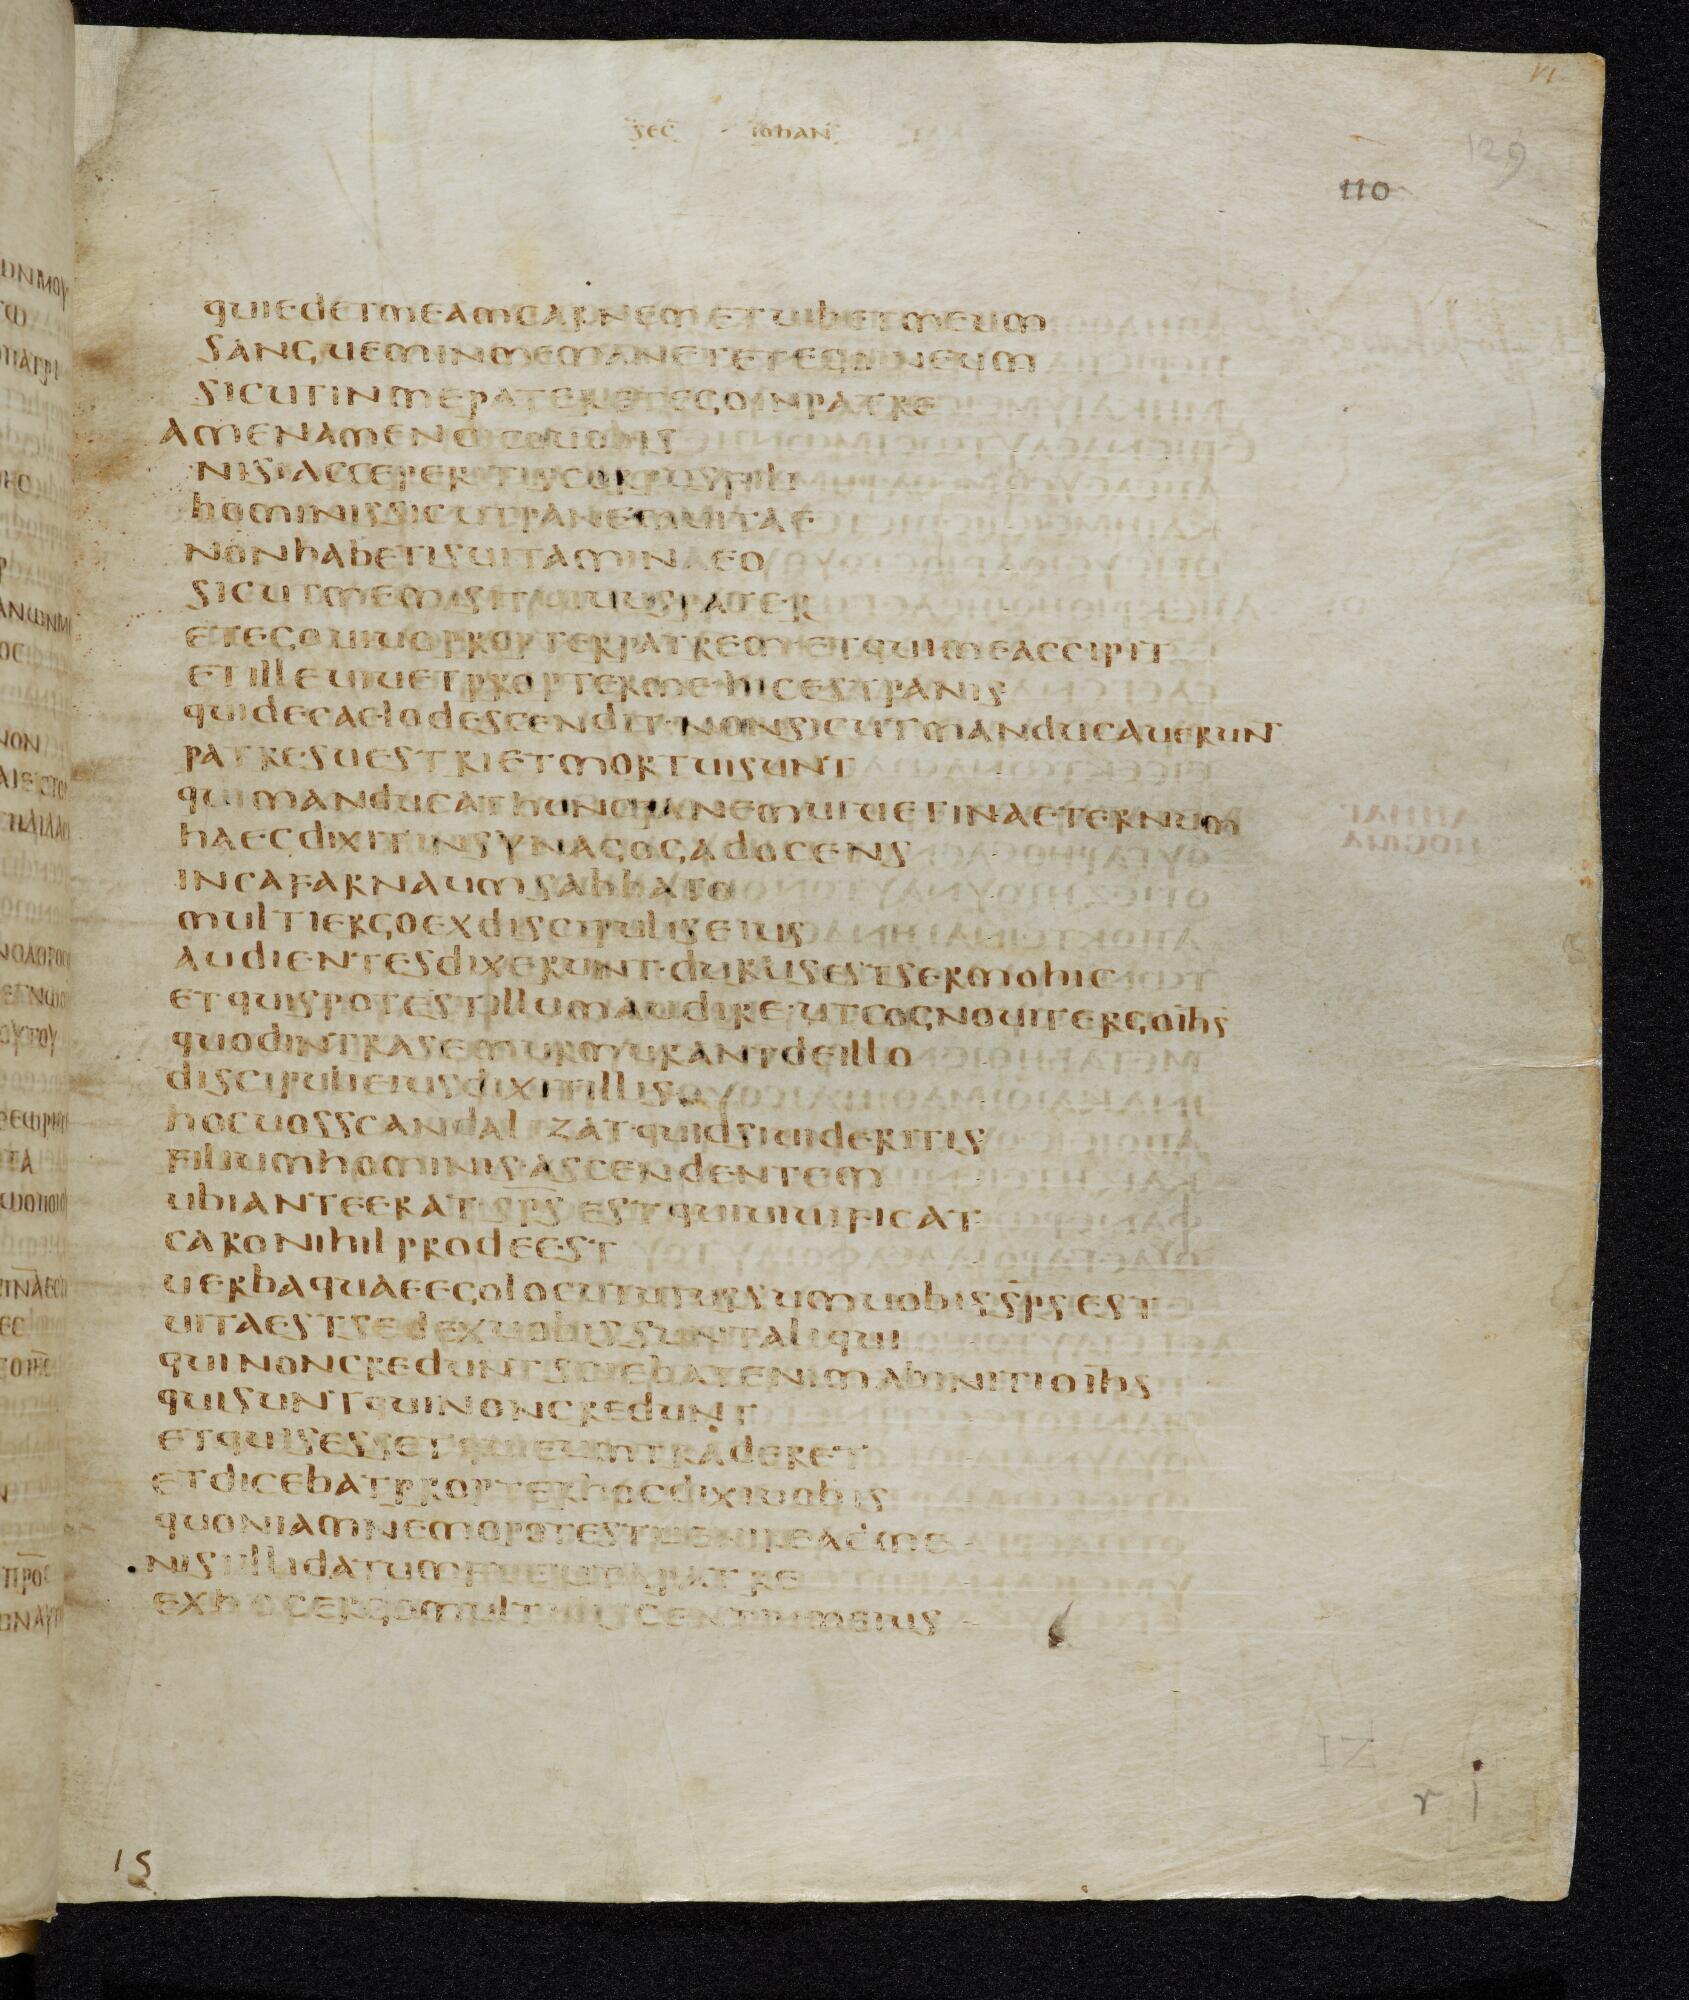 sec iohan
129
110
quiedetmeamcarnemetuibetmeum
sangueminmemanetetegoineum
sicutinmepateretegoinpatre
amenamendicouobis
nisiacceperitiscorpusfili
hominissicutpanemuitae
nonhabetisuitamineo
sicutmemisituiuuspater
etegouiuopropterpatremetquimeaccipit
etilleuiuetpropterme·hicestpanis
quidecaelodescendit·nonsicutmanducauerunt
patresuestrietmortuisunt
quimanducathuncpanemuiuetinaeternum
haecdixitinsynagogadocens
incafarnaumsabbato
multiergoexdiscipuliseius
audientesdixerunt·durusestsermohic
etquispotestillumaudire·utcognouitergoihs
quodintrasemurmurantdeillo
discipulieiusdixitillis
hocuosscandalizat·quidsiuideritis
filiumhominis·ascendentem
ubianteerat·sps estquiuiuificat
caronihilprodeest
uerbaquaeegolocutussumuobisspsest
uitaestsedexuobissuntaliqui
quinoncreduntsciebatenimabinitioihs
quisuntquinoncredunt
etquisessetquieumtraderet
etdicebatpropterhocdixiuobis
quoniamnemopotestuenireadme
nisiillidatumfueritapatre
exhocergomultidiscentiumeius
IZ
r i
15